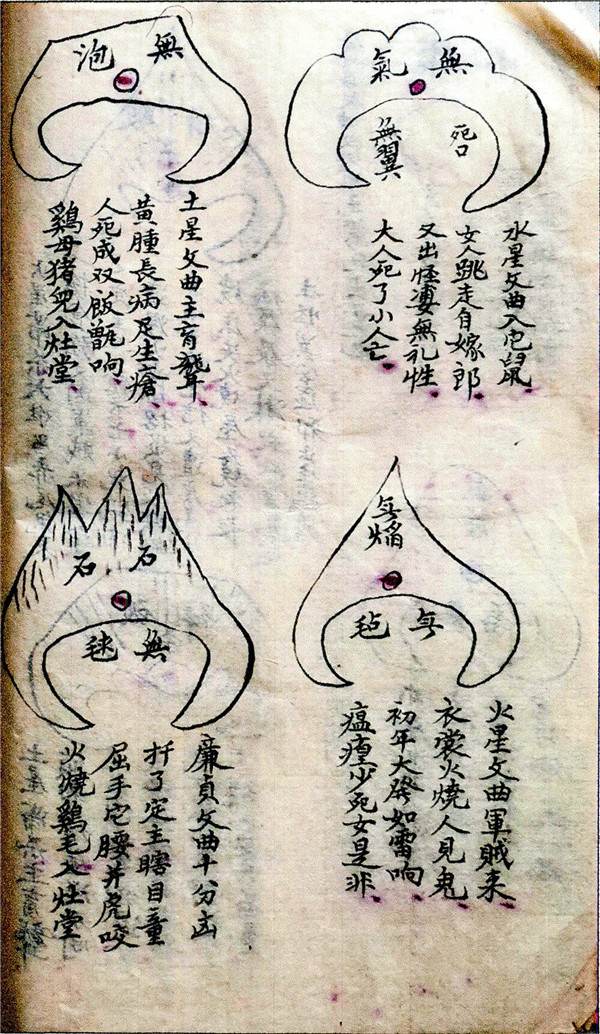 無氣
無翼
死口
水星文曲入宅鼠
女人跳走自嫁郎
又出怪凄無礼性
大人死了小人亡
無泡
土星文曲主盲聾
黄腫長病足生瘡
人死成双飯甑响
鷄母猪兒入灶堂
無焰
無毡
火星文曲軍賊来
衣裳火燒人見鬼
初年大發如雷响
瘟𤺥少死女是非
石石
無毬
廉貞文曲十分凶
扦了定主瞎目童
屈手它腰并虎咬
火燒鷄毛入灶堂